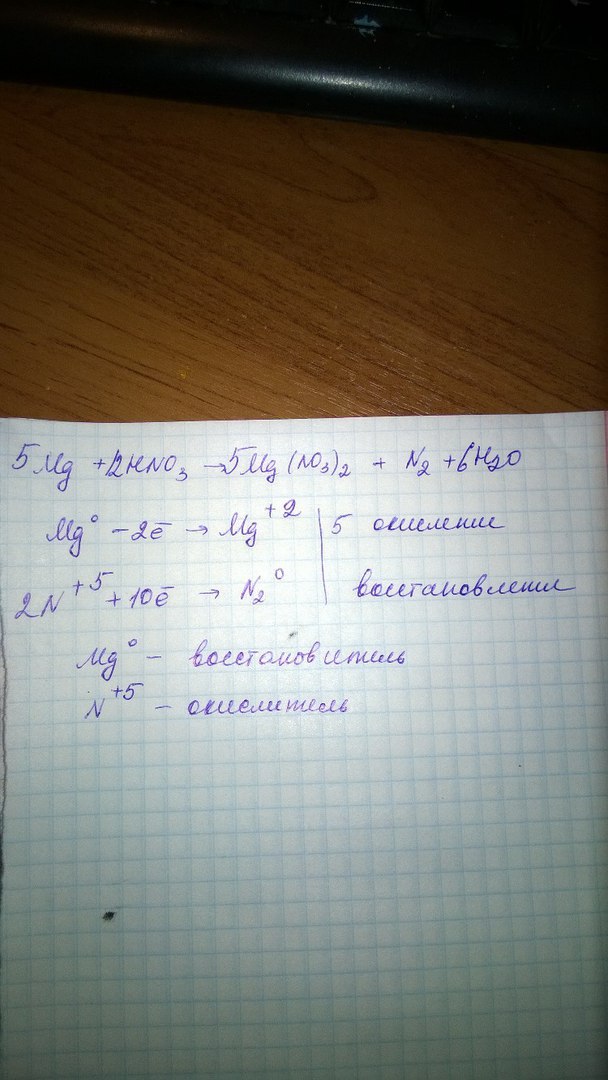 5Mg + 12HNO₃ → 5Mg(NO₃)₂ + N₂ + 6H₂O
Mg⁰ − 2ē → Mg⁺² | 5 окисление
2N⁺⁵ + 10ē → N₂⁰ | восстановления
Mg⁰ – восстановитель
N⁺⁵ – окислитель